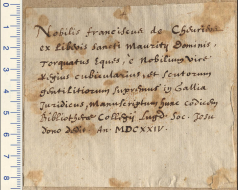 Nobilis franciscus de
ex Libris sancti Mauritÿ Dominis,
Torquatus Eques, e Nobilium Vice
Regius cubicularius, et scutorum
gentilitiorum supremus in Gallia
Juridicus, Manuscriptum hunc codicem
Bibliothecæ Collegÿ Lugd. Soc. Jesu
dono dedit An. MDCXXIV.